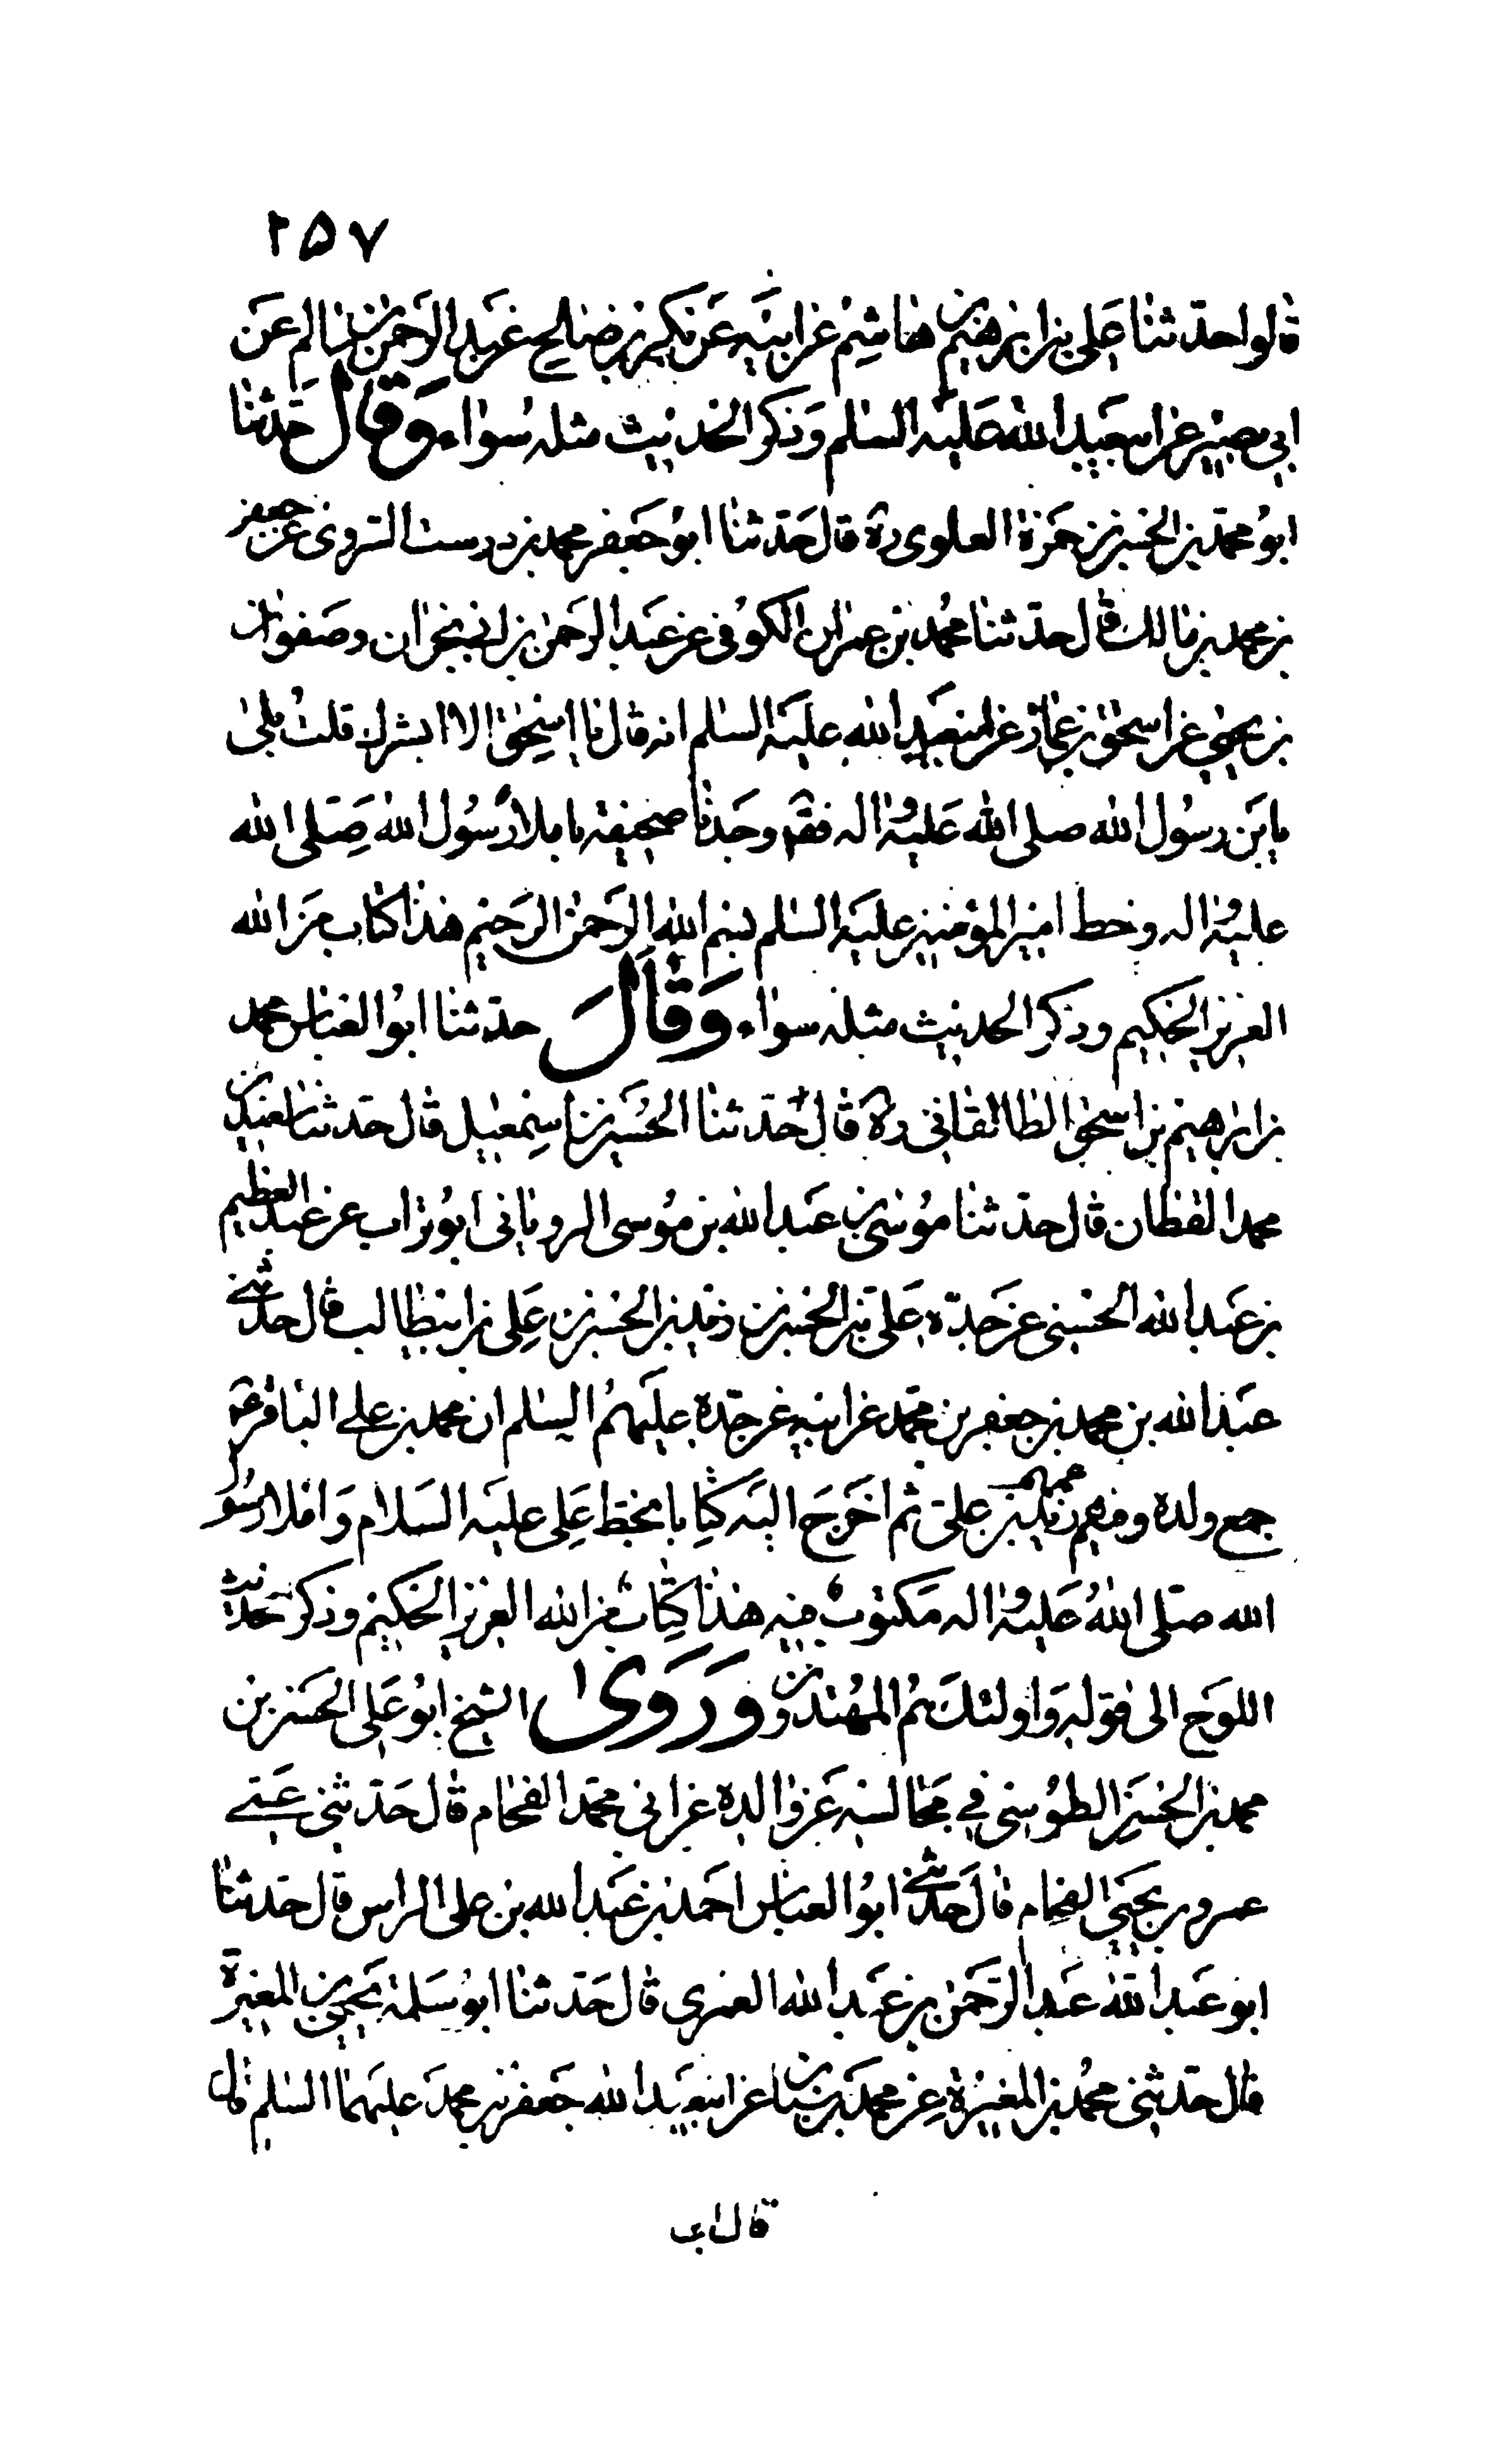 ٢٥٧
قالوا حدثنا علی بن ابرهیم بن هاشم عن ابیه عن بکر بن صالح عن عبد الرحمن بن سالم عن
ابی بصیر عن ابیعبد الله علیه السلم وذکر الحدیث مثله سواء وقال حدثنا
ابو محمد بن الحسن بن حمزة العلوی ره قال حدثنا ابو جعفر محمد بن درست السروی عن جعفر
بن محمد بن مالک قال حدثنا محمد بن عمران الکوفی عن عبد الرحمن بن ابی نجران وصفوان
بن یحیی عن اسحق بن عمار عن ابیعبد الله علیه السلم انه قال یا اسحق الا ابشرک قلت بلی
یابن رسول الله صلی الله علیه واله فقال وجدنا صحیفة باملاء رسول الله صلی الله
علیه واله وخط امیر المؤمنین علیه السلم بسم الله الرحمن الرحیم هذا کتاب من الله
العزیز الحکیم وذکر الحدیث مثله سواء وقال حدثنا ابو العباس محمد
بن ابرهیم بن اسحق الطالقانی ره قال حدثنا الحسن بن اسمعیل قال حدثنا سعید بن
محمد القطان قال حدثنا موسی بن عبد الله بن موسی الرویانی ابو تراب عن عبد العظیم
بن عبد الله الحسنی عن جده علی بن الحسن بن زید بن الحسن بن علی بن ابیطالب قال حدثنی
عبد الله بن محمد بن جعفر بن محمد عن ابیه عن جده علیهم السلم ان محمد بن علی الباقر ع
جمع ولده وفیهم عمهم زید بن علی ثم اخرج الیه کتابا بخط علی علیه السلام واملاء رسول
الله صلی الله علیه واله مکتوب فیه هذا کتاب من الله العزیز الحکیم وذکر حدیث
اللوح الی قوله واولئک هم المهتدون وروی الشیخ ابو علی الحسن بن
محمد بن الحسن الطوسی فی مجالسه عن والده عن ابی محمد الفحام قال حدثنی عمی
عمرو بن یحیی الفحام قال حدثنی ابو العباس احمد بن عبد الله بن علی الراس قال حدثنا
ابو عبد الله عبد الرحمن بن عبد الله العمری قال حدثنا ابو سلمة یحیی بن المغیرة
قال حدثنی محمد بن المغیرة عن محمد بن سنان عن ابیعبد الله جعفر بن محمد علیهما السلم قال
قال ابی